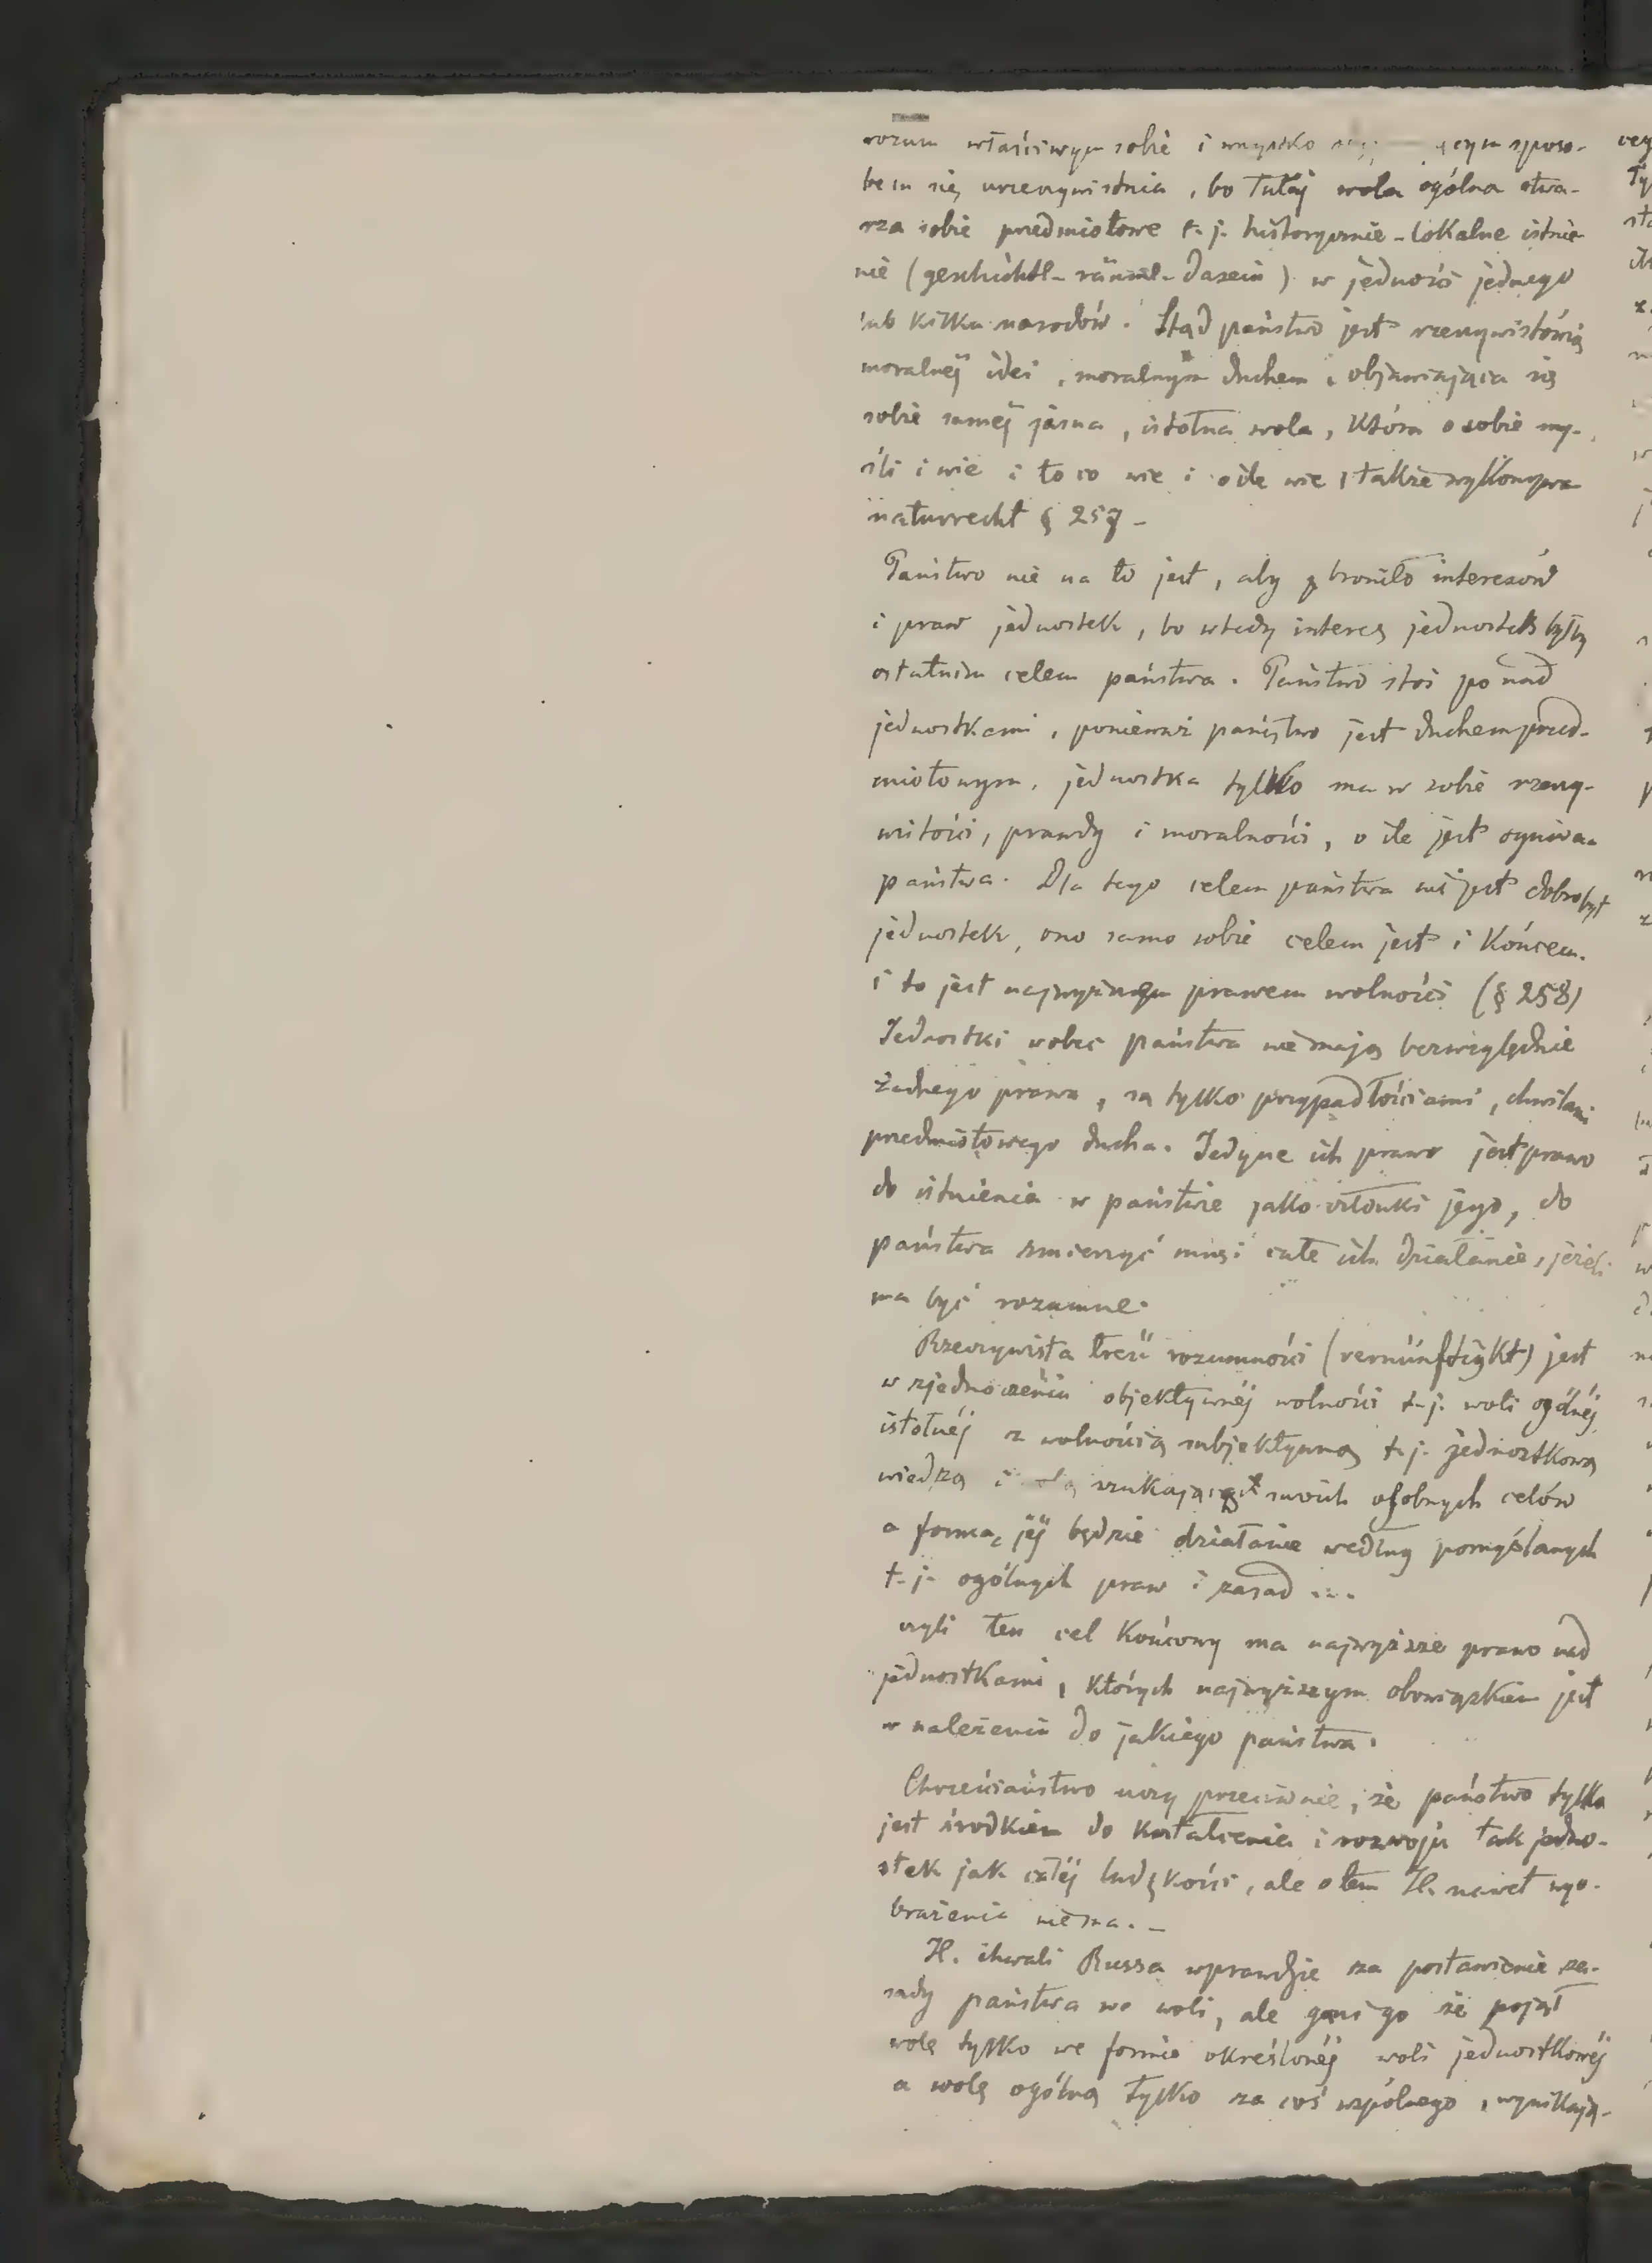 rozum właściwym sobie i wszystko cym sposo-
bem się urzeczywistnia, bo tutaj wola ogólna stwa-
rza sobie przedmiotowe t. j. historycznie-lokalne istnie-
nie (geschichtl- räuml- Dasein) w jedności jednego
lub kilku narodów. Stąd państwo jest rzeczywistością
moralnej idei, moralnym duchem, objawiająca się
sobie samej jasna, istotna wola, która o sobie my-
śli i wie i to co wie i o ile wie, także wykonywa
naturrecht § 257 -
Państwo nie na to jest, aby broniło interesów
i praw jednostek, bo wtedy interes jednostek byłby
ostatnim celem państwa. Państwo stoi ponad
jednostkami, ponieważ państwo jest duchem przed-
miotowym, jednostka tylko ma w sobie rzeczy-
wistości, prawdy i moralności, o ile jest
państwa. Dla tego celem państwa nie jest dobrobyt
jednostek, ono samo sobie celem jest i końcem.
i to jest najwyższym prawem wolności (§ 258)
Jednostki wobec państwa nie mają bezwzględnie
żadnego prawa, są tylko przypadłościami, chwilami
przedmiotowego ducha. Jedyne ich prawo jest prawo
do istnienia w państwie jako członki jego, do
państwa zmierzyć musi całe ich działanie, jeżeli
ma być rozumne.
Rzeczywista treść rozumności (vernünftigkt) jest
w zjednoczeniu objektywnéj wolności t. j. woli ogólnéj
istotnéj z wolnością subjektywną t. j. jednostkową
wiedzą i szukającą swoich osobnych celów
a formą jéj będzie działanie według pomyślanych
t. j. ogólnych praw i zasad ...
czyli ten cel końcowy ma najwyższe prawo nad
jednostkami, których najwyższym obowiązkiem jest
w należeniu do jakiego państwa.
Chrześciaństwo uczy przeciwnie, że państwo tylko
jest środkiem do kształcenia i rozwoju tak jedno-
stek jak całéj ludzkości, ale o tem H. nawet wyo-
brażenia nie ma. -
H. chwali Russa wprawdzie za postawienie za-
sady państwa we woli, ale gani go że pojął
wolę tylko we formie określonéj woli jednostkowéj
a wolę ogólną tylko za coś wspólnego, wynikają-